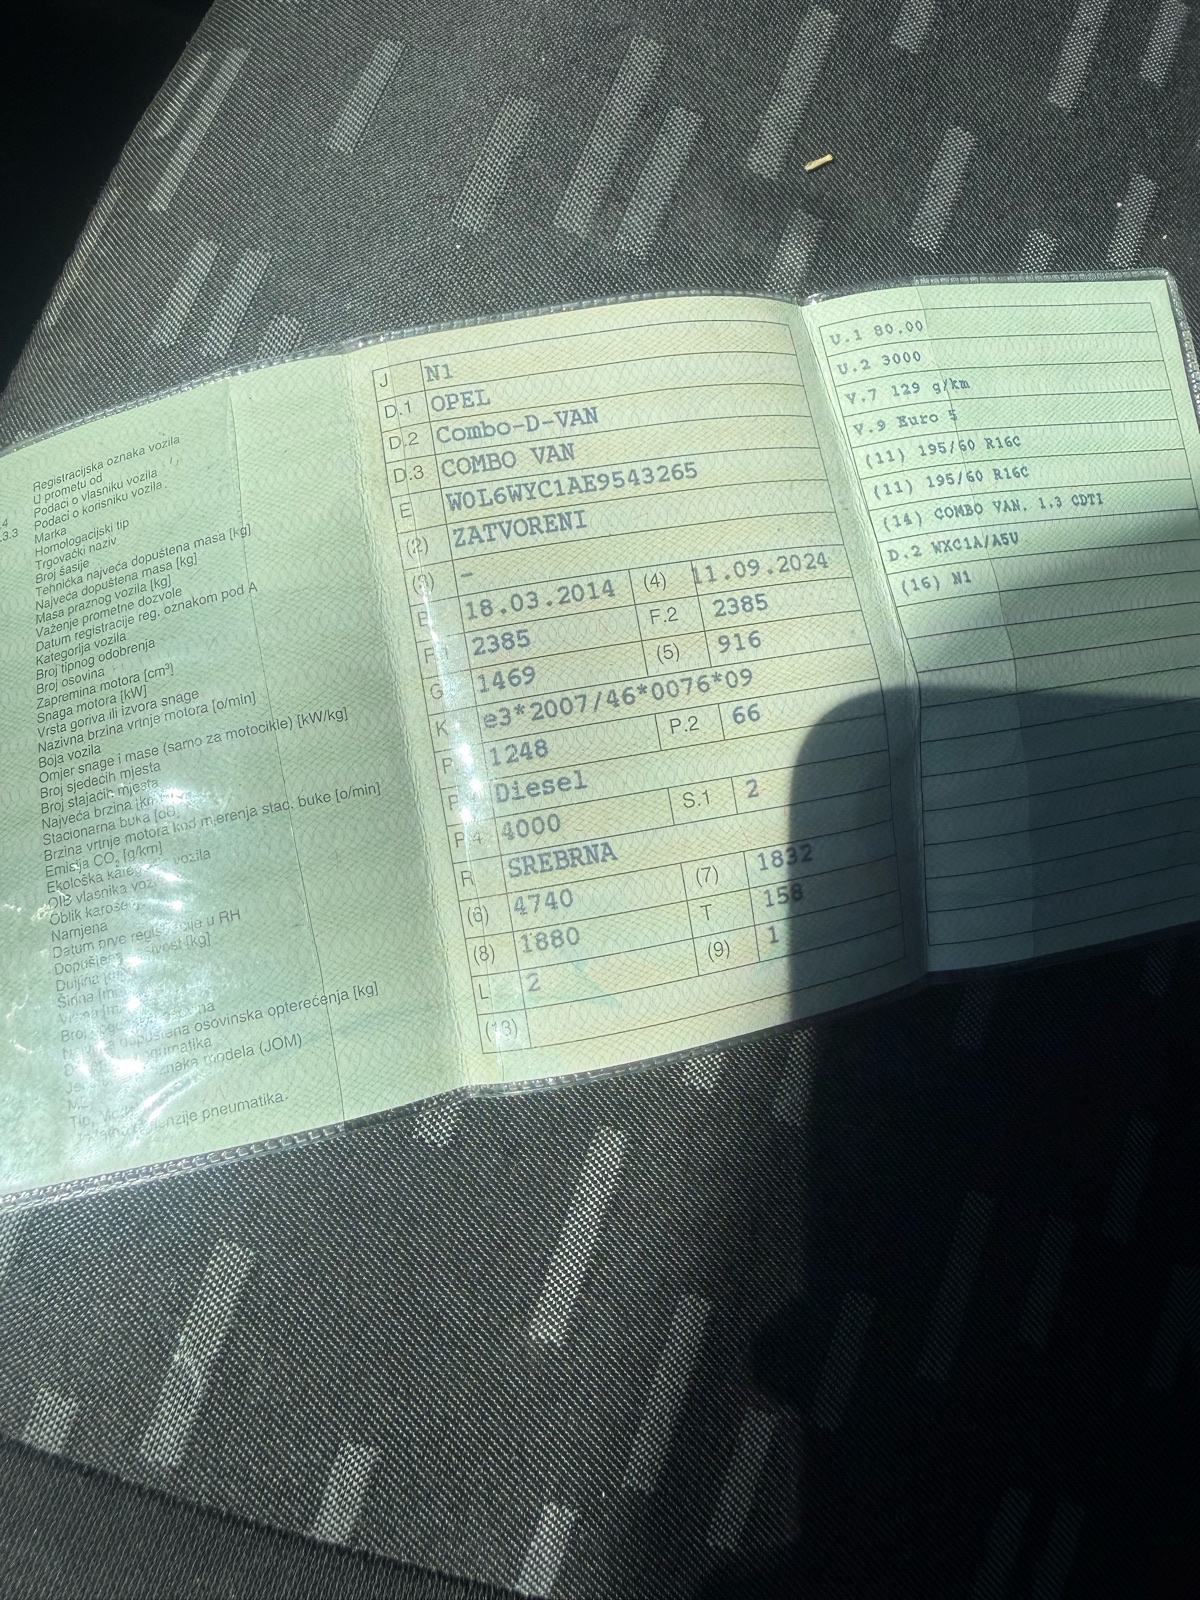 Registracijska oznaka vozila
U prometu od
Podaci o vlasniku vozila
4 Podaci o korisniku vozila
.3.3 Marka
Homologacijski tip
Trgovački naziv
Broj šasije
Tehnička najveća dopuštena masa [kg]
Najveća dopuštena masa [kg]
Masa praznog vozila [kg]
Važenje prometne dozvole
Datum registracije reg. oznakom pod A
Kategorija vozila
Broj tipnog odobrenja
Broj osovina
Zapremina motora [cm³]
Snaga motora [kW]
Vrsta goriva ili izvora snage
Nazivna brzina vrtnje motora [o/min]
Boja vozila
Omjer snage i mase (samo za motocikle) [kW/kg]
Broj sjedećih mjesta
Broj stajaćih mjesta
Najveća brzina
Stacionarna buka
Brzina vrtnje motora kod mjerenja stac. buke [o/min]
Emisija CO₂ [g/km]
Ekološka vozila
OIB vlasnika
Oblik
Namjena
Datum prve u RH
[kg]
osovinska opterećenja [kg]
modela (JOM)
pneumatika
J N1
D.1 OPEL
D.2 Combo-D-VAN
D.3 COMBO VAN
E W0L6WYC1AE9543265
(2) ZATVORENI
(3) –
18.03.2014 (4) 11.09.2024
F 2385 F.2 2385
G 1469 (5) 916
K e3*2007/46*0076*09
P 1248 P.2 66
P Diesel
P.4 4000 S.1 2
R SREBRNA
(6) 4740 (7) 1832
(8) 1880 T 158
L 2 (9) 1
(13)
U.1 80.00
U.2 3000
V.7 129 g/km
V.9 Euro 5
(11) 195/60 R16C
(11) 195/60 R16C
(14) COMBO VAN. 1.3 CDTI
D.2 WXC1A/A5U
(16) N1